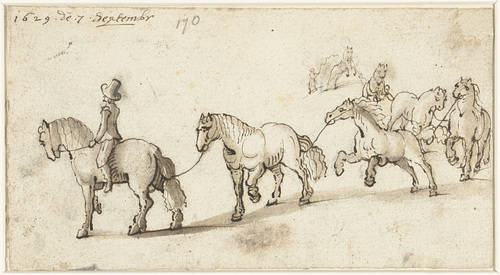 1629. de. 7. Septembr
170